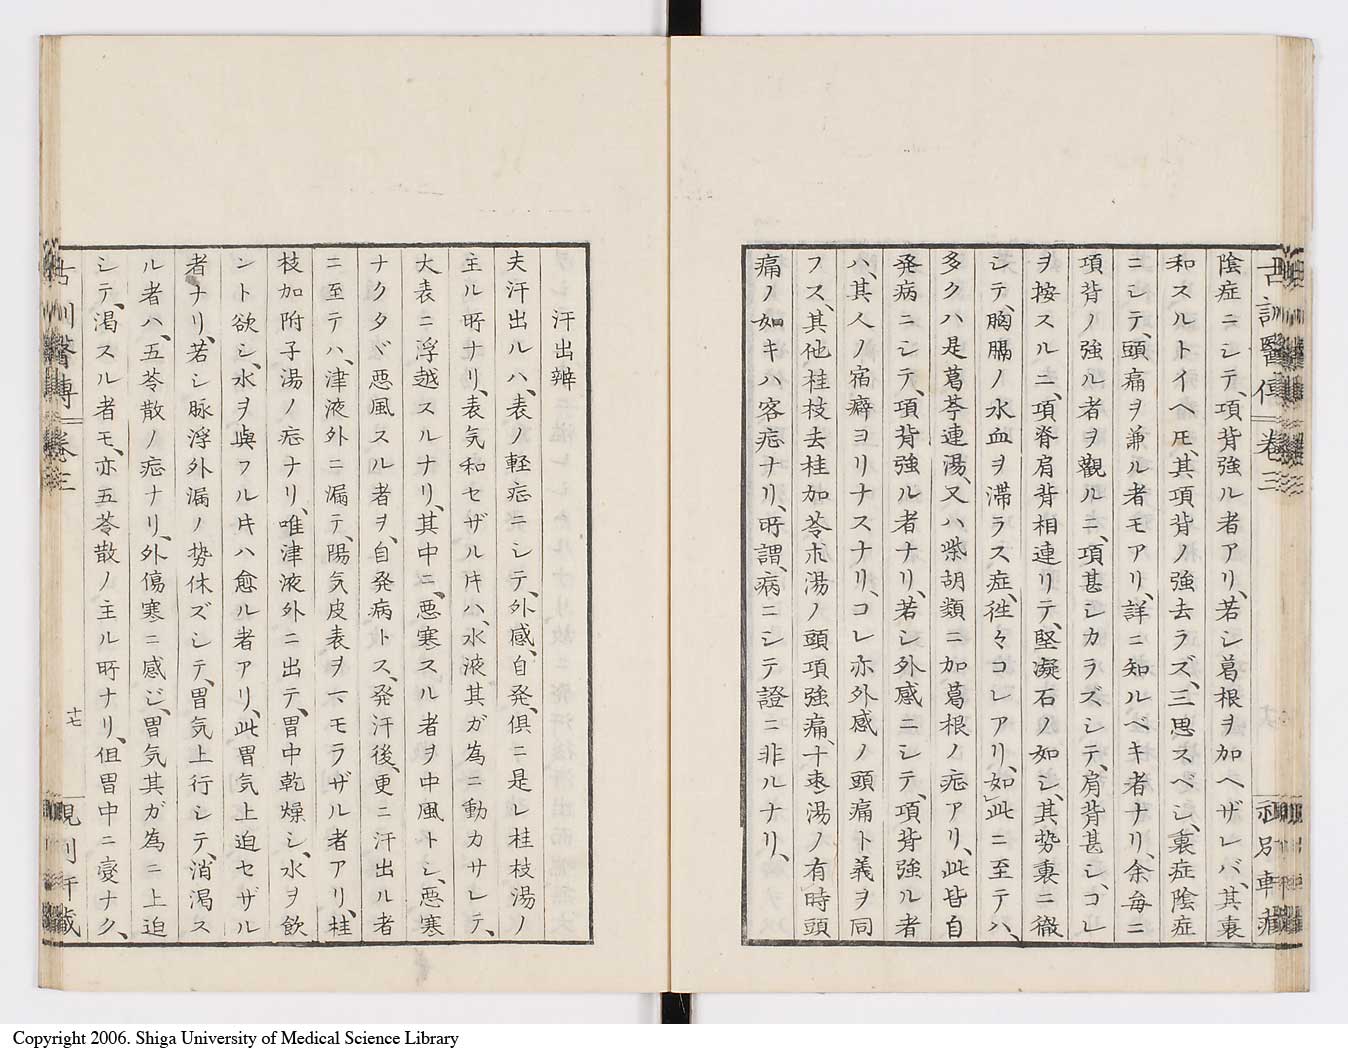 古訓醫傳 卷三
陰症ニシテ、項背強ル者アリ、若シ葛根ヲ加ヘザレバ、其裏
和スルトイヘㇹ、其項背ノ強去ラズ、三思スベシ、裏症陰症
ニシテ、頭痛ヲ兼ル者モアリ、詳ニ知ルベキ者ナリ、余每ニ
項背ノ強ル者ヲ觀ルニ、項甚シカラズシテ、肩背甚シ、コレ
ヲ按スルニ、項脊肩背相連リテ、堅凝石ノ如シ、其勢裏ニ徹
シテ、胸膈ノ水血ヲ滞ラス症、徃々コレアリ、如此ニ至テハ、
多クハ是葛芩連湯、又ハ柴胡類ニ加葛根ノ症アリ、此皆自
発病ニシテ、項背強ル者ナリ、若シ外感ニシテ、項背強ル者
ハ、其人ノ宿癖ヨリナスナリ、コレ亦外感ノ頭痛ト義ヲ同
フス、其他桂枝去桂加苓朮湯ノ頭項強痛、十棗湯ノ有時頭
痛ノ如キハ客症ナリ、所謂、病ニシテ證ニ非ルナリ、
汗出辨
夫汗出ルハ、表ノ軽症ニシテ、外感、自発、俱ニ是レ桂枝湯ノ
主ル所ナリ、表気和セザル片ハ、水液其ガ為ニ動カサレテ、
大表ニ浮越スルナリ、其中ニ、悪寒スル者ヲ中風トシ、悪寒
ナクタヾ悪風スル者ヲ、自発病トス、発汗後、更ニ汗出ル者
ニ至テハ、津液外ニ漏テ、陽気皮表ヲマモラザル者アリ、桂
枝加附子湯ノ症ナリ、唯津液外ニ出テ、胃中乾燥シ、水ヲ飲
ント欲シ、水ヲ與フル片ハ愈ル者アリ、此胃気上迫セザル
者ナリ、若シ脉浮外漏ノ勢休ズシテ、胃気上行シテ、消渇ス
ル者ハ、五苓散ノ症ナリ、外傷寒ニ感ジ、胃気其ガ為ニ上迫
シテ、渇スル者モ、亦五苓散ノ主ル所ナリ、但胃中ニ變ナク、
十七